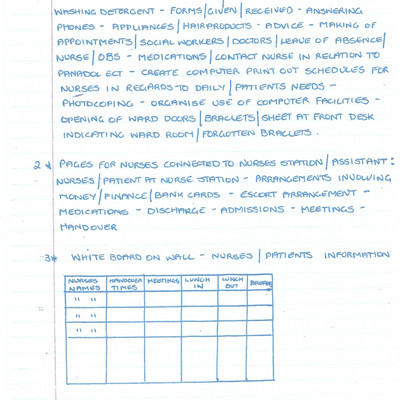 WASHING DETERGENT - FORMS/GIVEN/RECEIVED - ANSWERING
PHONES - APPLIANCES/HAIRPRODUCTS - ADVICE - MAKING OF
APPOINTMENTS/SOCIAL WORKERS/DOCTORS/LEAVE OF ABSENCE/
NURSE/OBS - MEDICATIONS/CONTACT NURSE IN RELATION TO
PANADOL ECT - CREATE COMPUTER PRINT OUT SCHEDULES FOR
NURSES IN REGARDS TO DAILY/PATIENTS NEEDS -
PHOTOCOPING - ORGANISE USE OF COMPUTER FACILITIES -
OPENING OF WARD DOORS/BRACLETS/SHEET AT FRONT DESK
INDICATING WARD ROOM/FORGOTTEN BRACLETS.
2* PAGES FOR NURSES CONNECTED TO NURSES STATION/ASSISTANT:
NURSES/PATIENT AT NURSE STATION - ARRANGEMENTS INVOLVING
MONEY/FINANCE/BANK CARDS - ESCORT ARRANGEMENT -
MEDICATIONS - DISCHARGE - ADMISSIONS - MEETINGS -
HANDOVER
3* WHITE BOARD ON WALL - NURSES/PATIENTS INFORMATION
NURSES NAMES HANDOVER TIMES MEETINGS LUNCH IN LUNCH OUT
" "
" "